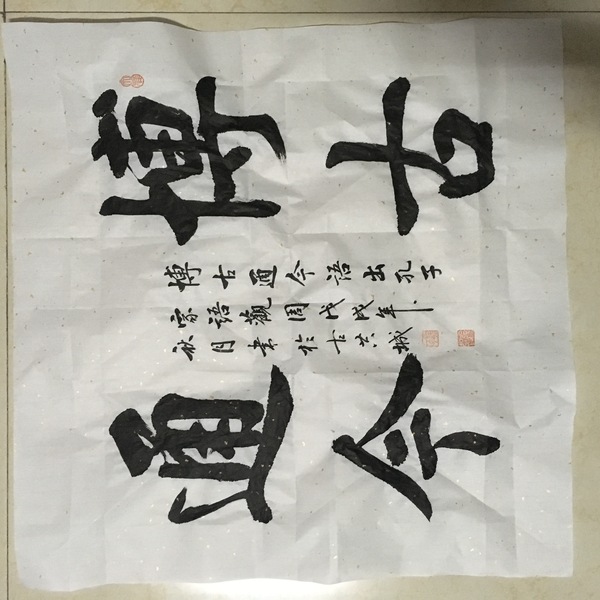 博古
通今
博古通今语出孔子
家語觀周戊戌年
秋月書於古共城